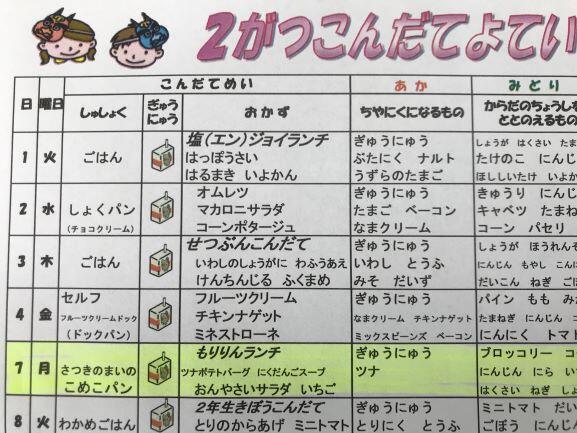 2がつこんだてよてい
こんだてめい あか みどり
日 曜日 しゅしょく ぎゅうにゅう おかず ちやにくになるもの からだのちょうしを ととのえるもの
1 火 ごはん
塩(エン)ジョイランチ
はっぽうさい
はるまき いよかん
ぎゅうにゅう
ぶたにく ナルト
うずらのたまご
しょうが はくさい たま
たけのこ にんじ
ほししいたけ いよかん
2 水 しょくパン
(チョコクリーム)
オムレツ
マカロニサラダ
コーンポタージュ
ぎゅうにゅう
たまご ベーコン
なまクリーム
きゅうり にんじ
キャベツ たまね
コーン パセリ
3 木 ごはん
せつぶんこんだて
いわしのしょうがに わふうあえ
けんちんじる ふくまめ
ぎゅうにゅう
いわし とうふ
みそ だいず
しょうが ほうれん
にんじん もやし こんに
だいこん ねぎ ご
4 金 セルフ
フルーツクリームドック
(ドックパン)
フルーツクリーム
チキンナゲット
ミネストローネ
ぎゅうにゅう
なまクリーム チキンナゲット
ミックスビーンズ ベーコン
パイン もも み
たまねぎ にんじん コ
にんにく トマ
7 月 さつきのまいの
こめこパン
もりりんランチ
ツナポテトバーグ にくだんごスープ
おんやさいサラダ いちご
ぎゅうにゅう
ツナ
ブロッコリー コ
にんじん にら い
はくさい ねぎ しょ
8 火 わかめごはん
2年生きぼうこんだて
とりのからあげ ミニトマト
ぎゅうにゅう
とりにく とうふ
ミニトマト だい
ごぼう にんじん